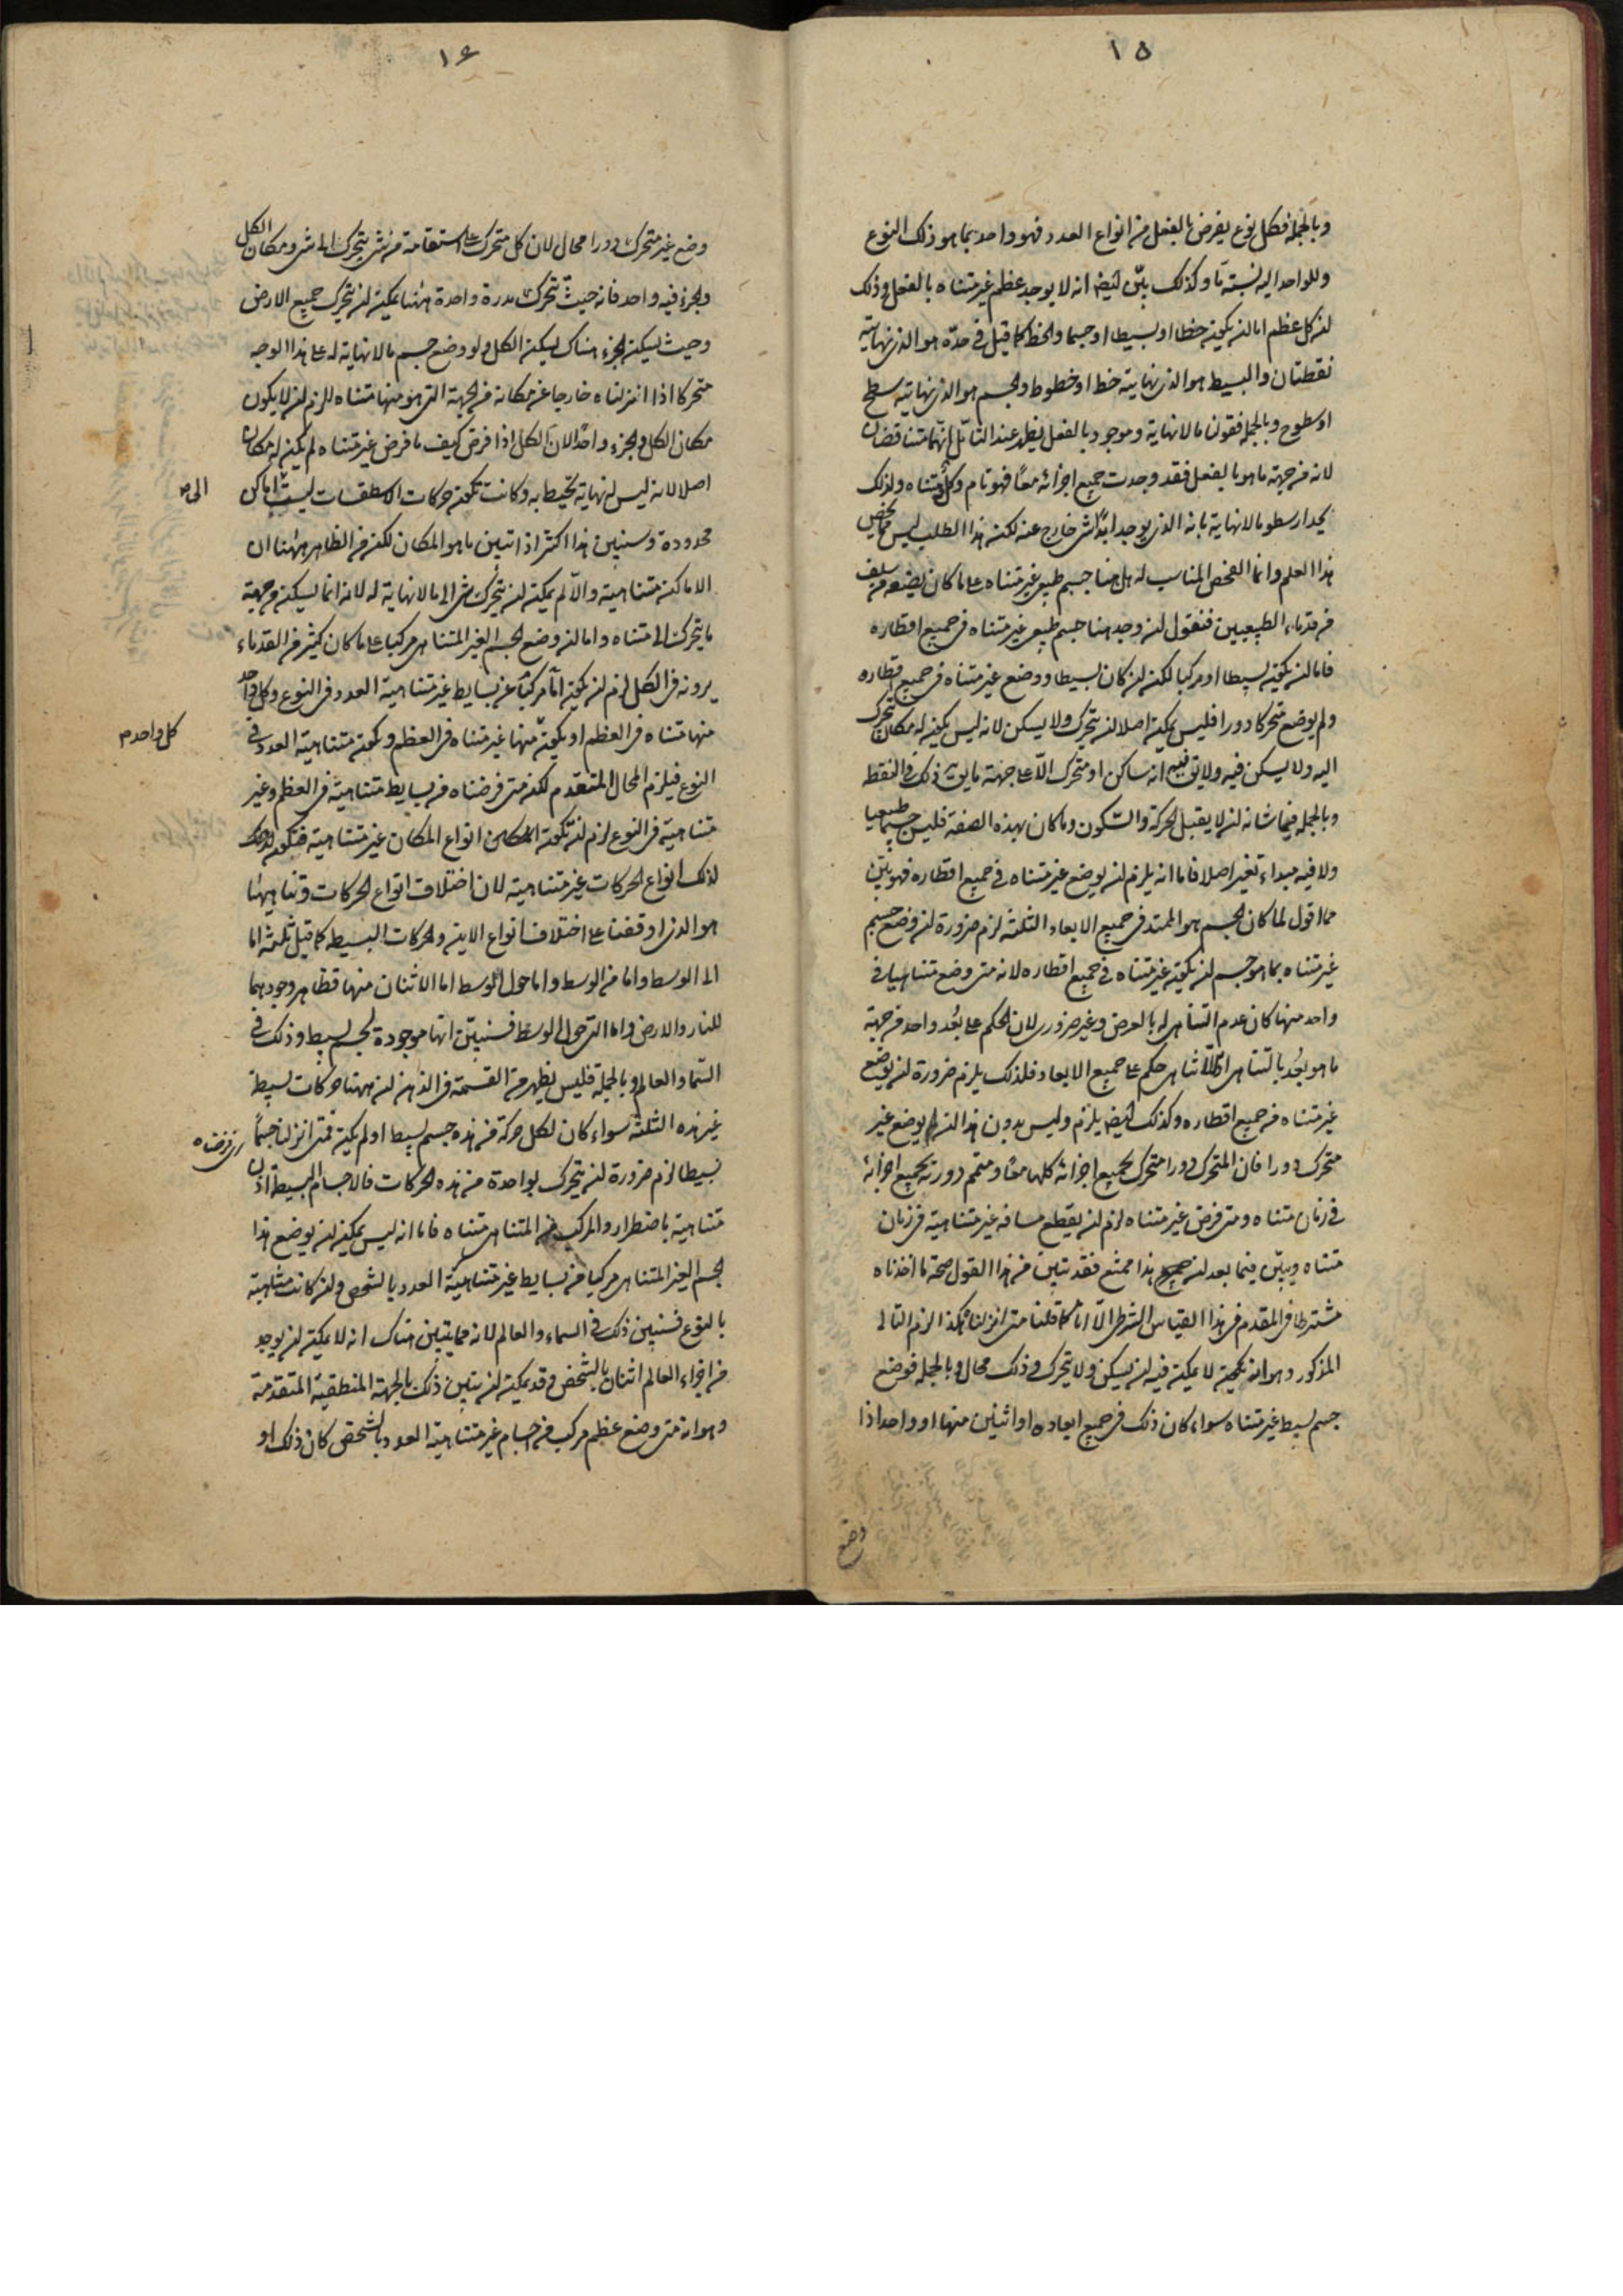 ١٥
وبالجملة فكل نوع يفرض بالفعل من انواع العدد فهو واحد بما هو ذلك النوع
وللواحد اليه نسبة ما وكذلك يبين ايضا انه لا يوجد عظم غير متناه بالفعل وذلك
ان كل عظم اما ان يكون خطا او بسيطا او جسما والخط كما قيل في حده هو الذي نهايته
نقطتان والبسيط هو الذي نهايته خط او خطوط والجسم هو الذي نهايته سطح
او سطوح وبالجملة فقولنا ما لا نهاية وموجود بالفعل يظهر عند التأمل انهما متناقضان
لانه من جهة ما هو بالفعل فقد وجدت جميع اجزائه معًا فهو تام وكل متناه ولذلك
يحد ارسطو ما لا نهاية بانه الذي يوجد ابدًا شي خارج عنه لكن هذا الطلب ليس مما يخص
هذا العلم وانما الفحص المناسب له هل هنا جسم طبيعي غير متناه على ما كان يضعه من سلف
من قدماء الطبيعيين فنقول ان وجد هنا جسم طبيعي غير متناه في جميع اقطاره
فاما ان يكون بسيطا او مركبا لكن ان كان بسيطا ووضع غير متناه في جميع اقطاره
ولم يوضع متحركا دورا فليس يمكن اصلا ان يتحرك ولا يسكن لانه ليس يكون له مكان يتحرك
اليه ولا يسكن فيه ولا يق فيه انه ساكن او متحرك الا على جهة ما يق ذلك في النقط
وبالجملة فيما شانه ان لا يقبل الحركة والسكون وما كان بهذه الصفة فليس جسما طبيعيا
ولا فيه مبداء تغير اصلا فاما انه يلزم ان يوضع غير متناه في جميع اقطاره فهو بين
مما اقول لما كان الجسم هو الممتد في جميع الابعاد الثلثة لزم ضرورة ان وضع جسم
غير متناه بما هو جسم ان يكون غير متناه في جميع اقطاره لانه متى وضع متناهيا في
واحد منها كان عدم التناهي له بالعرض وغير ضروري لان الحكم على بُعد واحد من جهة
ما هو بُعد بالتناهي او اللاتناهي حكم على جميع الابعاد فلذلك يلزم ضرورة ان يوضع
غير متناه في جميع اقطاره وكذلك ايضا يلزم وليس بدون هذا ان يوضع غير
متحرك دورا فان المتحرك دورا متحرك بجميع اجزائه كلها معًا ومتمم دورته بجميع اجزائه
في زمان متناه ومتى فرض غير متناه لزم ان يقطع مسافة غير متناهية في زمان
متناه ويبين فيما بعد ان هذا ممتنع فقد تبين من هذا القول صحة ما اخذناه
مشترطا في المقدم في هذا القياس الشرطي الا انا كما قلنا متى انزلناه هكذا لزم التالي
المذكور وهو انه يكون لا يمكن فيه ان يسكن ولا يتحرك وذلك محال وبالجملة فوضع
جسم بسيط غير متناه سواء كان ذلك في جميع ابعاده او اثنين منها او واحد اذا
وضع
١٦
وضع غير متحرك دورا محال لان كل متحرك على استقامة من شي يتحرك الى شي ومكان الكل
والجزء فيه واحد فانه حيث تتحرك مدرة واحدة ههنا يمكن ان يتحرك جميع الارض
وحيث يسكن الجزء هناك يسكن الكل ولو وضع جسم ما لا نهاية له على هذا الوجه
متحركا اذا انزلناه خارجا عن مكانه من الجهة التي هو منها متناه للزم ان لا يكون
مكان الكل والجزء واحدًا لان الكل اذا فرض كيف ما فرض غير متناه لم يكن له مكان
اصلا لانه ليس له نهاية تحيط به وكانت تكون حركات الاسطقسات ليست اماكن
الى
محدودة وسنبين هذا اكثر اذا تبين ما هو المكان لكن من الظاهر ههنا ان
الاماكن متناهية والا لم يمكن ان يتحرك شي الى ما لا نهاية له لانه انما يسكن من جهة
ما يتحرك الى متناه واما ان وضع الجسم الغير المتناهي مركبا على ما كان كثير من القدماء
يرونه في الكل لزم ان يكون اما مركبًا عن بسايط غير متناهية العدد في النوع وكل واحد
منها متناه في العظم او يكون منها غير متناه في العظم وتكون متناهية العدد في
كل واحد
النوع فيلزم المحال المتقدم لكن متى فرضناه من بسايط متناهية في العظم وغير
متناهية في النوع لزم ان تكون انواع المكان غير متناهية فتكون
لذلك انواع الحركات غير متناهية لان اختلاف انواع الحركات وتناهيها
هو الذي اوقفنا على اختلاف انواع الاين والحركات البسيطة كما قيل ثلثة اما
الى الوسط واما من الوسط واما حول الوسط اما الاثنان منها فظاهر وجودهما
للنار والارض واما التي حول الوسط فسنبين انها موجودة لجسم بسيط وذلك في
السماء والعالم وبالجملة فليس يظهر من القسمة في الذهن ان ههنا حركات بسيطة
غير هذه الثلثة سواء كان لكل حركة من هذه جسم بسيط او لم يكن فمتى انزلنا جسمًا
اي فرضناه
بسيطا لزم ضرورة ان يتحرك بواحدة من هذه الحركات فالاجسام البسيطة اذن
متناهية باضطرار والمركب من المتناهي متناه فاما انه ليس يمكن ان يوضع هذا
الجسم الغير المتناهي مركبا من بسايط غير متناهية العدد بالشخص وان كانت متناهية
بالنوع فسنبين ذلك في السماء والعالم لانه مما يتبين هناك انه لا يمكن ان يوجد
من اجزاء العالم اثنان بالشخص وقد يمكن ان يتبين ذلك بالجهة المنطقية المتقدمة
وهو انه متى وضع عظم مركب من اجسام غير متناهية العدد بالشخص كان ذلك او